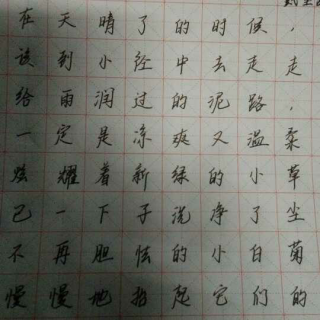 在天晴了的时候，
该到小径中去走走
给雨润过的泥路，
一定是凉爽又温柔
炫耀着新绿的小草
已一下子洗净了尘
不再胆怯的小白菊
慢慢地抬起它们的